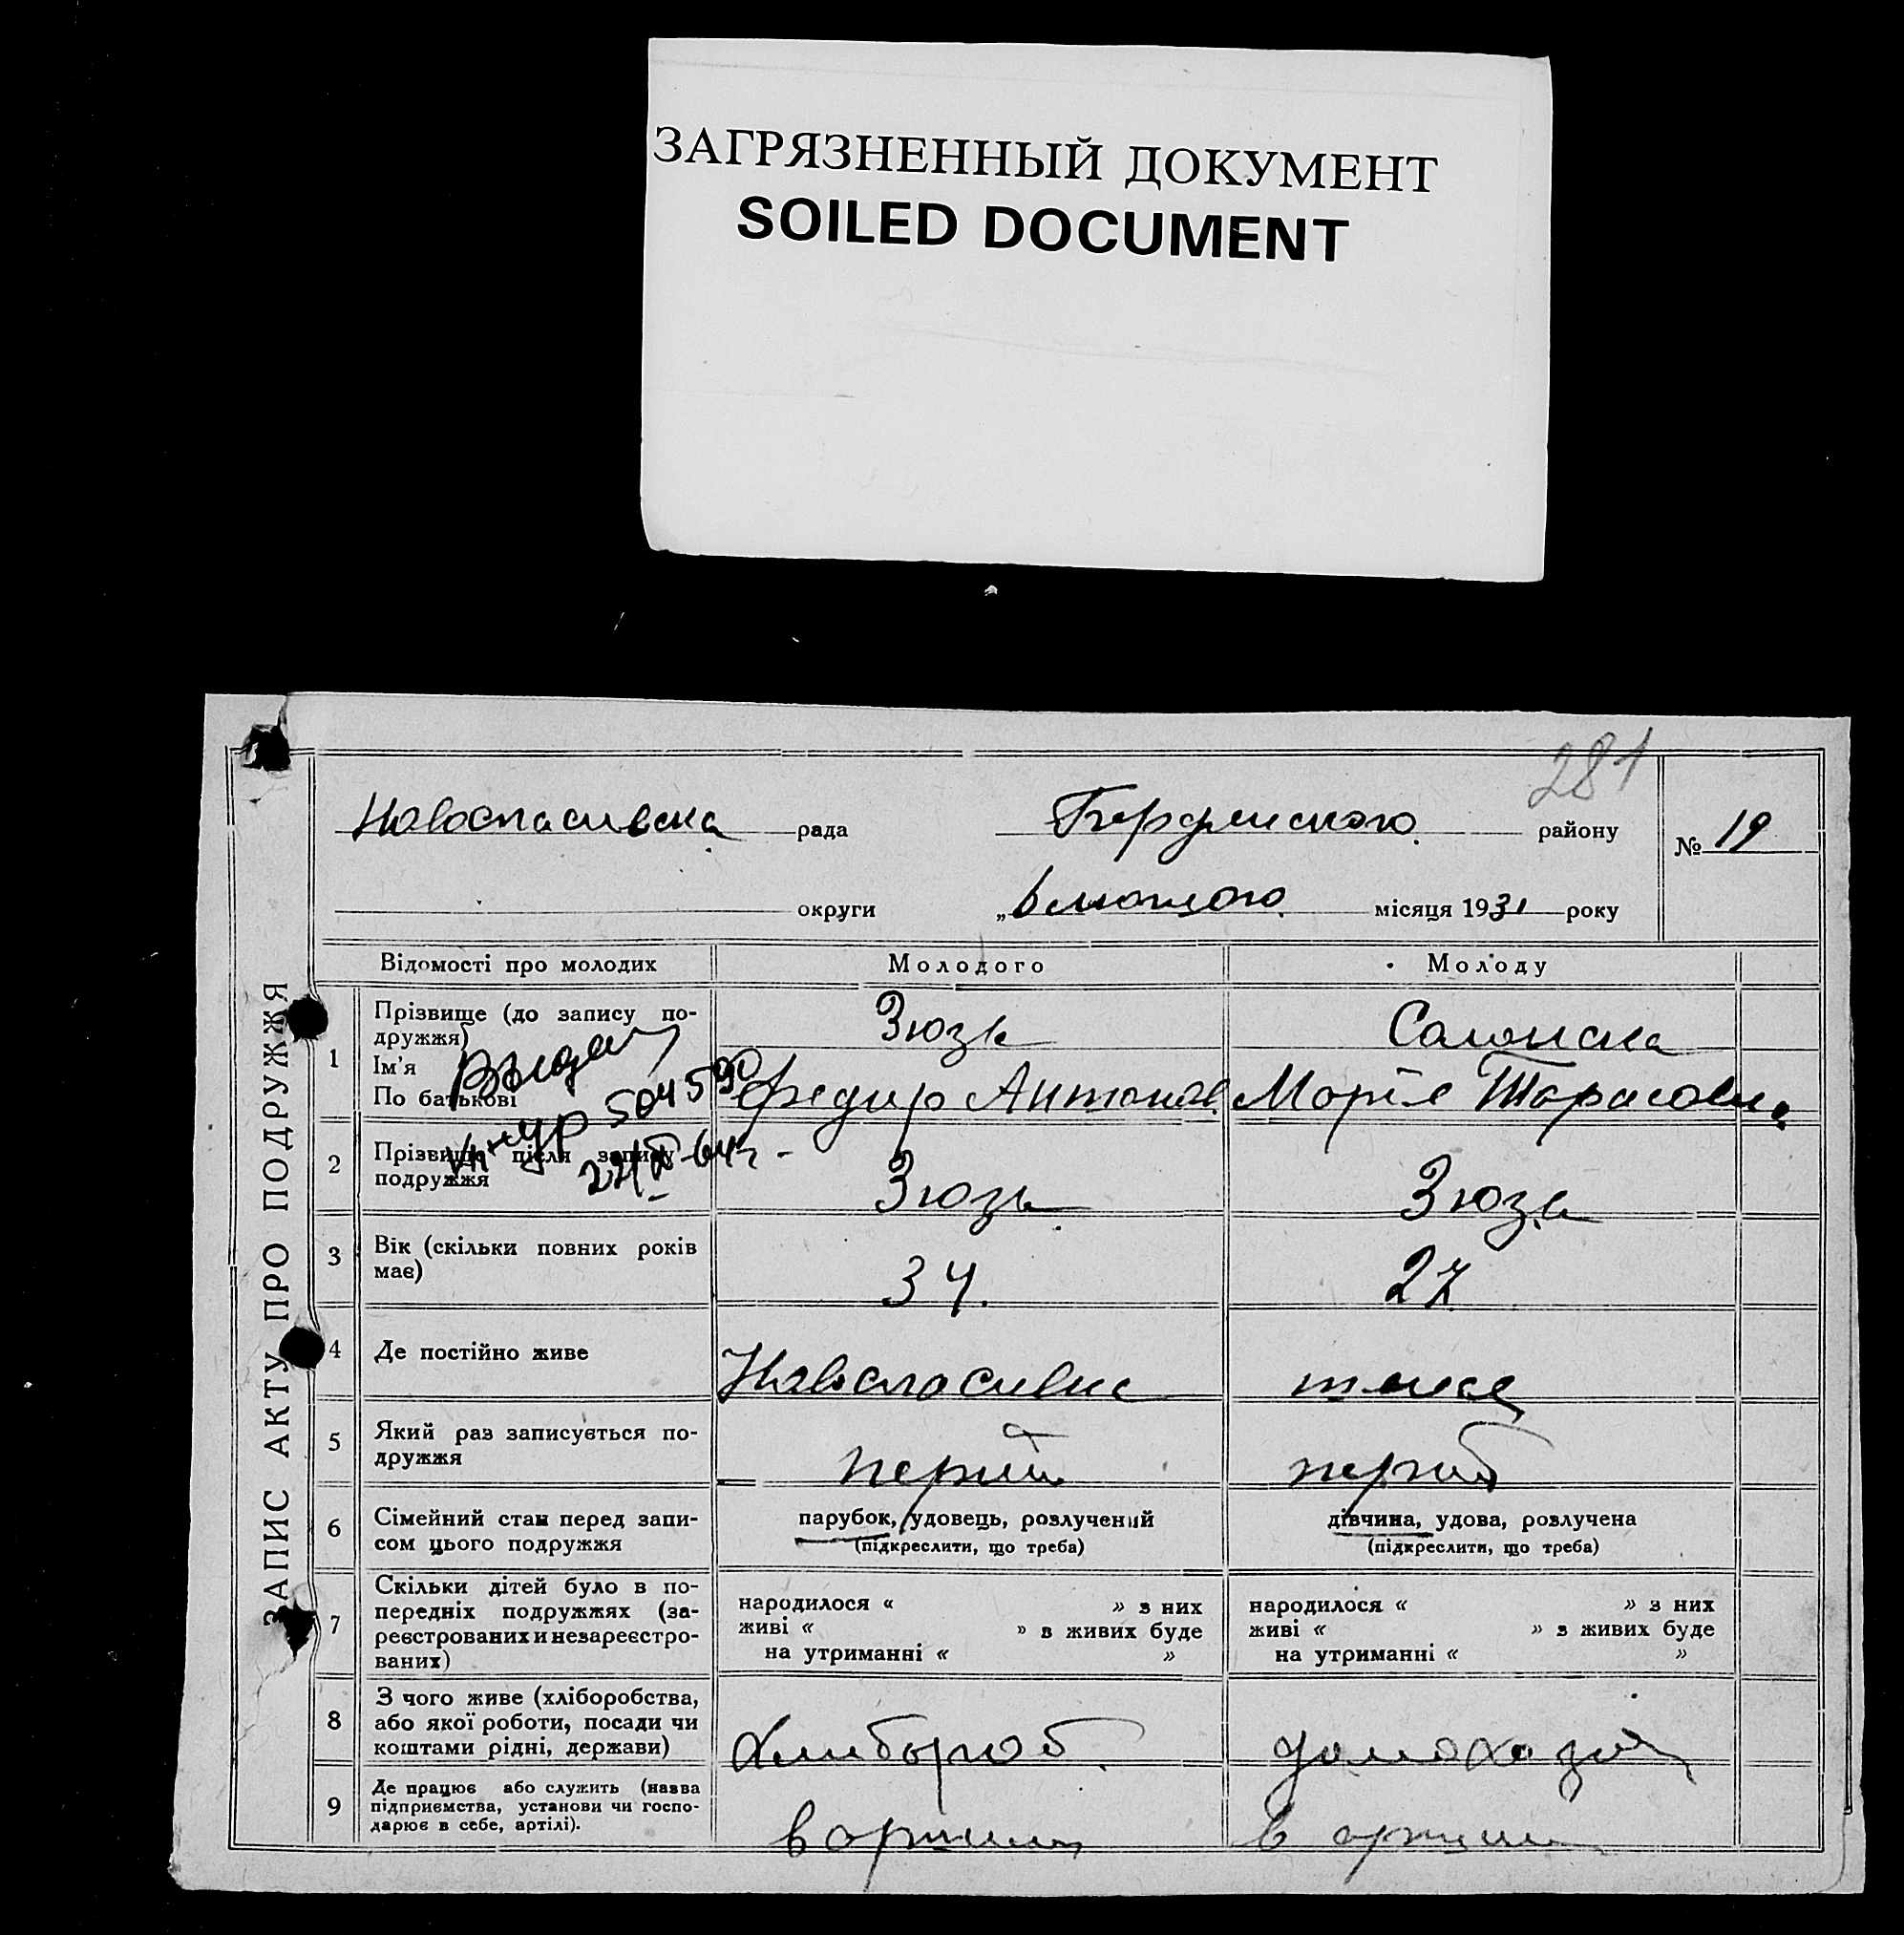 ЗАГРЯЗНЕННЫЙ ДОКУМЕНТ
SOILED DOCUMENT
281
Новоспасивска рада Бердянского району № 19
округи „6 лютого місяця 1931 року
ЗАПИС АКТУ ПРО ПОДРУЖЖЯ
Відомості про молодих Молодого Молоду
1 Прізвище (до запису по-
дружжя)
Ім'я
По батькові
Зюзь
Федир Антонов.
Марія Тарасовна
2 Прізвище після запису
подружжя
Зюзь Зюзь
3 Вік (скільки повних років
має)
34. 27
4 Де постійно живе
Новоспасивка
5 Який раз записується по-
дружжя
перший перший
6 Сімейний стан перед запи-
сом цього подружжя
парубок, удовець, розлучений
(підкреслити, що треба)
дівчина, удова, розлучена
(підкреслити, що треба)
7 Скільки дітей було в по-
передніх подружжях (за-
реєстрованих и незареєстро-
ваних)
народилося « » з них
живі « » в живих буде
на утриманні « »
народилося « » з них
живі « » з живих буде
на утриманні « »
8 З чого живе (хліборобства,
або якої роботи, посади чи
коштами рідні, держави)
9 Де працює або служить (назва
підприємства, установи чи госпо-
дарює в себе, артілі).
в артили в артили